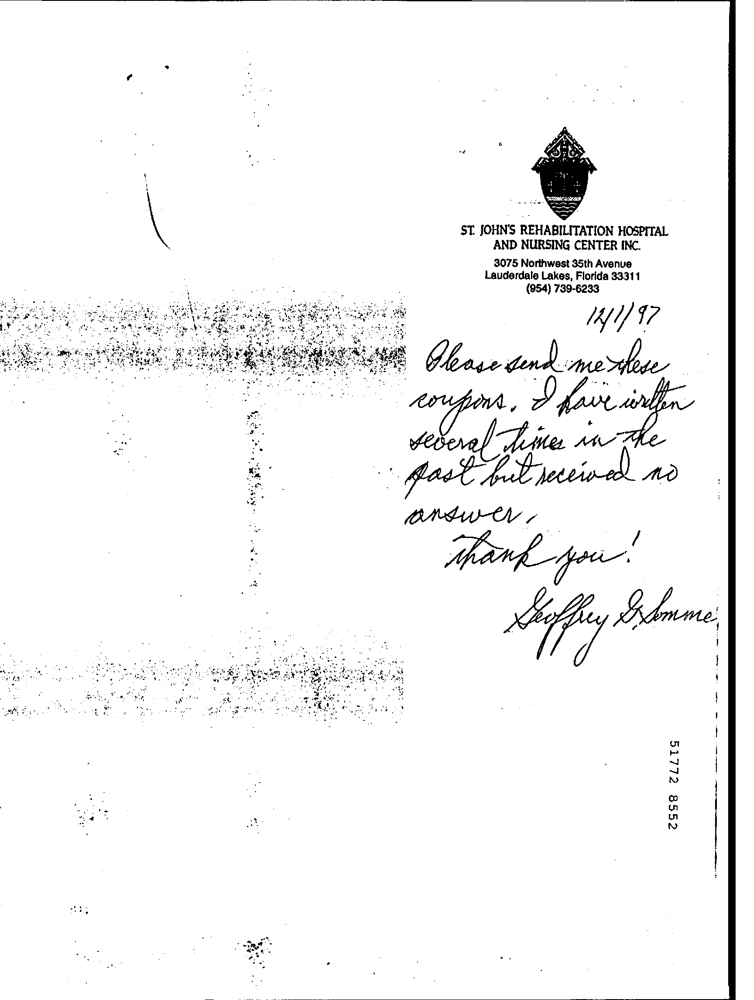 ST. JOHN'S REHABILITATION HOSPITAL
AND NURSING CENTER INC.
3075 Northwest 35th Avenue
Lauderdale Lakes, Florida 33311
(954) 739-6233
12/1/97
Please send me these
coupons. I have written
several times in the
past but received no
answer,
thank you!
Geoffrey G. Somme
51772 8552